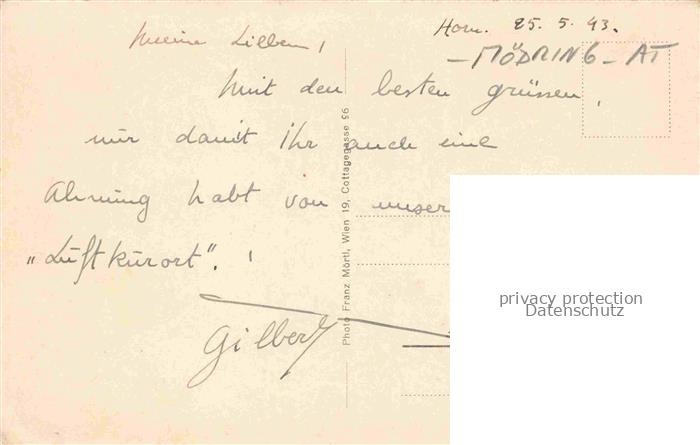 Horn. 25. 5. 43.
- MÖDRING - AT
Meine Lieben!
Mit den besten grüssen,
nur damit ihr auch eine
Ahnung habt von unser
„Luftkurort".!
Gilbert
Photo Franz Mörtl, Wien 19, Cottagegasse 26
privacy protection
Datenschutz